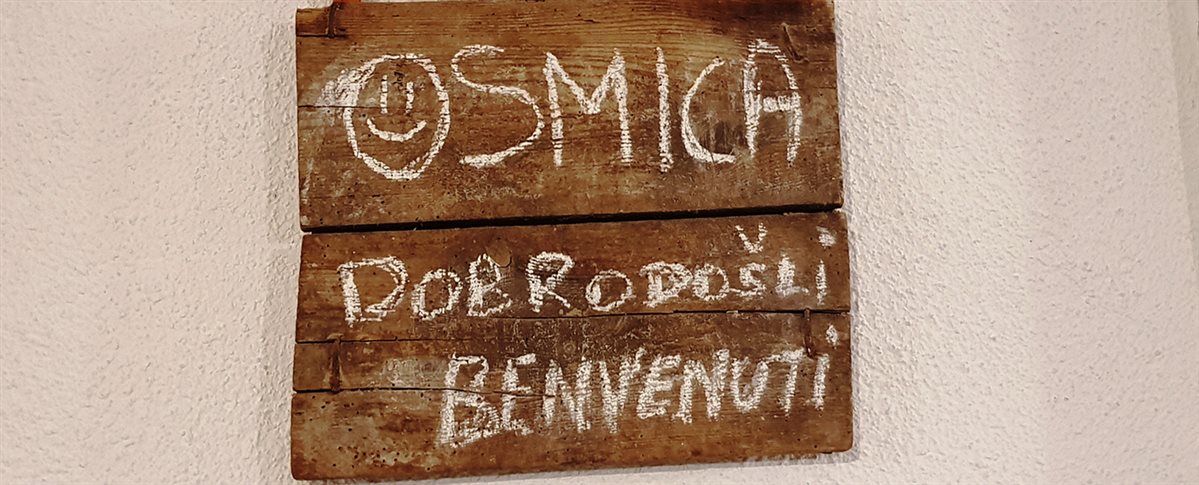 OSMICA
DOBRODOŠLi
BENVENUTi